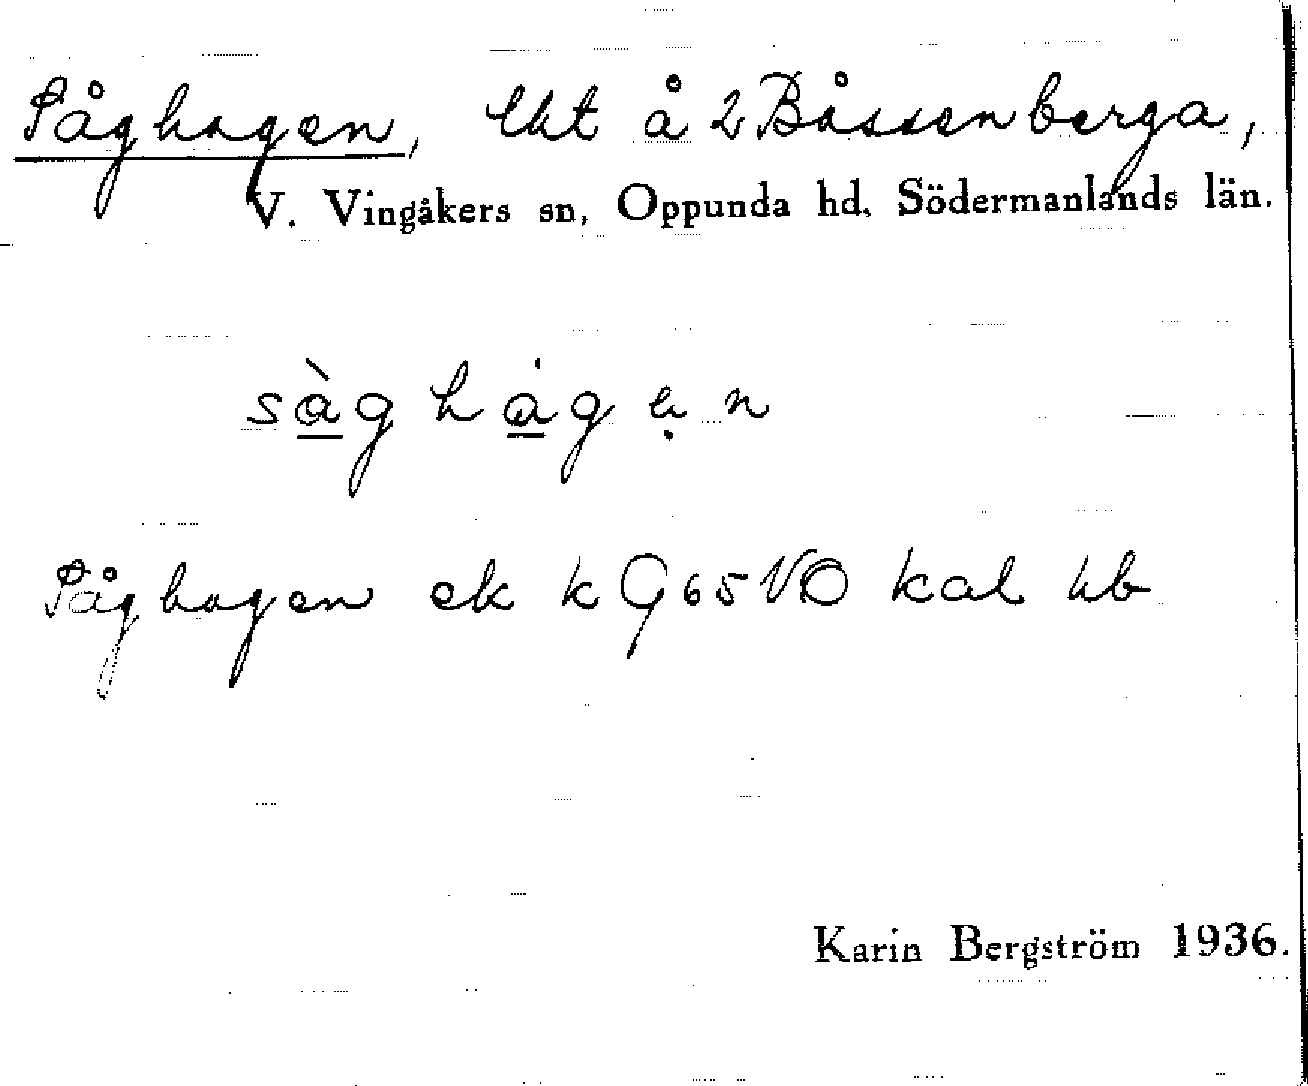 Såghagen, lht å 2 Båssenberga,
V. Vingåkers sn, Oppunda hd, Södermanlands län.
sàg hágẹn
Såghagen ek k G65NO kal hb
Karin Bergström 1936.